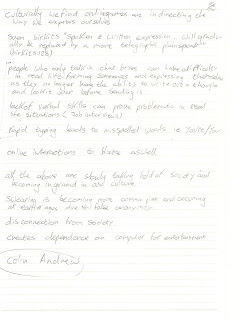 Culturally we find online games are indirecting the
way we express ourselves
"Spoken & Written expression, will gradu-
ally be replaced by a more telegraphic plainspeak"
people who only talk in chat boxes can have difficulty
in real life forming sentences and expressing themselves
as they no longer have the ability to write out a thought
and look it over before sending it.
lack of verbal skills can prove problematic in real
life situations (Job interviews)
Rapid typing leads to misspelled words ie You're/Your
online interactions to blame aswell
all of the above are slowly taking hold of society and
becoming ingrained in our culture.
Swearing is becoming more common place and occuring
at earlier ages due to false anonymity.
disconnection from society.
creates dependance on computer for entertainment
Colin Andrew